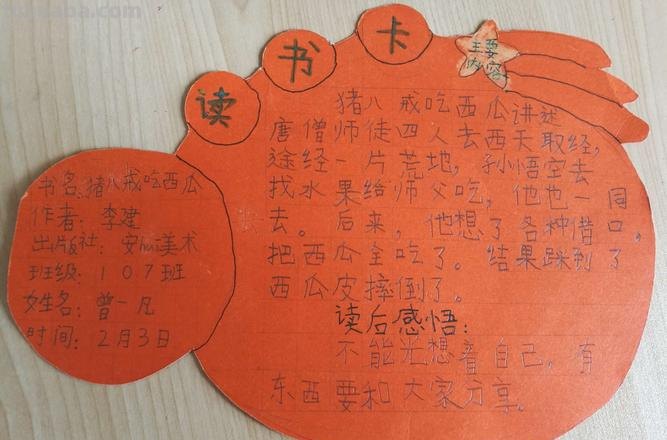 读书卡
主要
内容
书名:猪八戒吃西瓜
作者:李建
出版社:安徽美术
班级:107班
姓名:曾一凡
时间:2月3日
猪八戒吃西瓜讲述
唐僧师徒四人去西天取经,
途经一片荒地,孙悟空去
找水果给师父吃,他也一同
去。后来,他想了各种借口,
把西瓜全吃了。结果踩到了
西瓜皮摔倒了。
读后感悟:
不能光想着自己,有
东西要和大家分享。